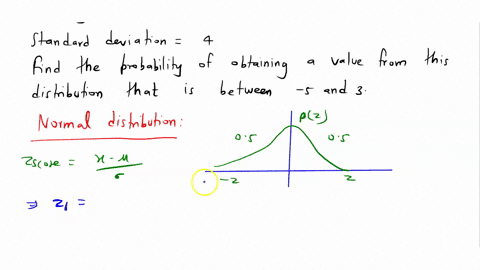 Standard deviation = 4
Find the probability of obtaining a value from this
distribution that is between -5 and 3.
Normal distribution:
P(z)
0.5 0.5
Zscore = x - μ / σ
-z z
⇒ z₁ =